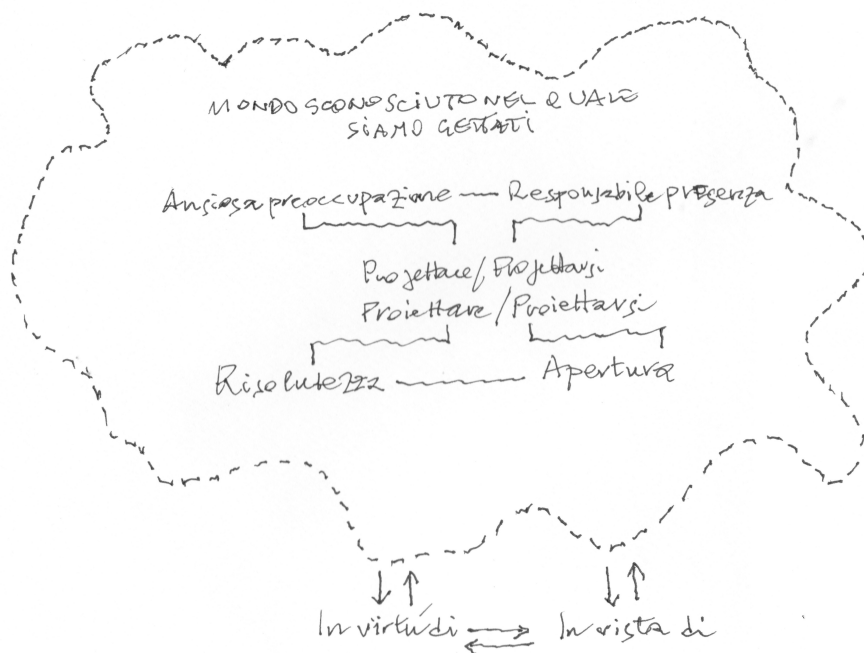 MONDO SCONOSCIUTO NEL QUALE
SIAMO GETTATI
Ansiosa preoccupazione — Responsabile presenza
Progettare/Progettarsi
Proiettare/Proiettarsi
Risolutezza — Apertura
In virtú di In vista di